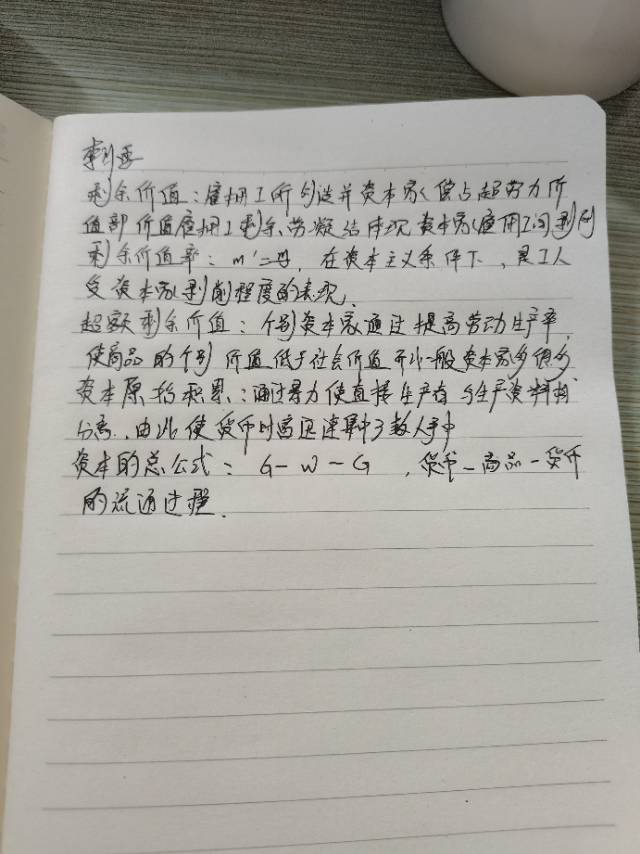 剩
剩余价值：雇佣工所创造并资本家占超劳力价
值部价值雇佣工剩余劳凝结体现资本家雇佣工间剥削
剩余价值率：m'= 在资本主义条件下，是工人
受资本家剥削程度的表现
超额剩余价值：个别资本家通过提高劳动生产率，
使商品的个别价值低于社会价值 一般资本家多得
资本原始积累：通过暴力使直接生产者与生产资料相
分离，由此使货币财富迅速集中少数人手中
资本的总公式：G-W-G，货币-商品-货币
的流通过程．